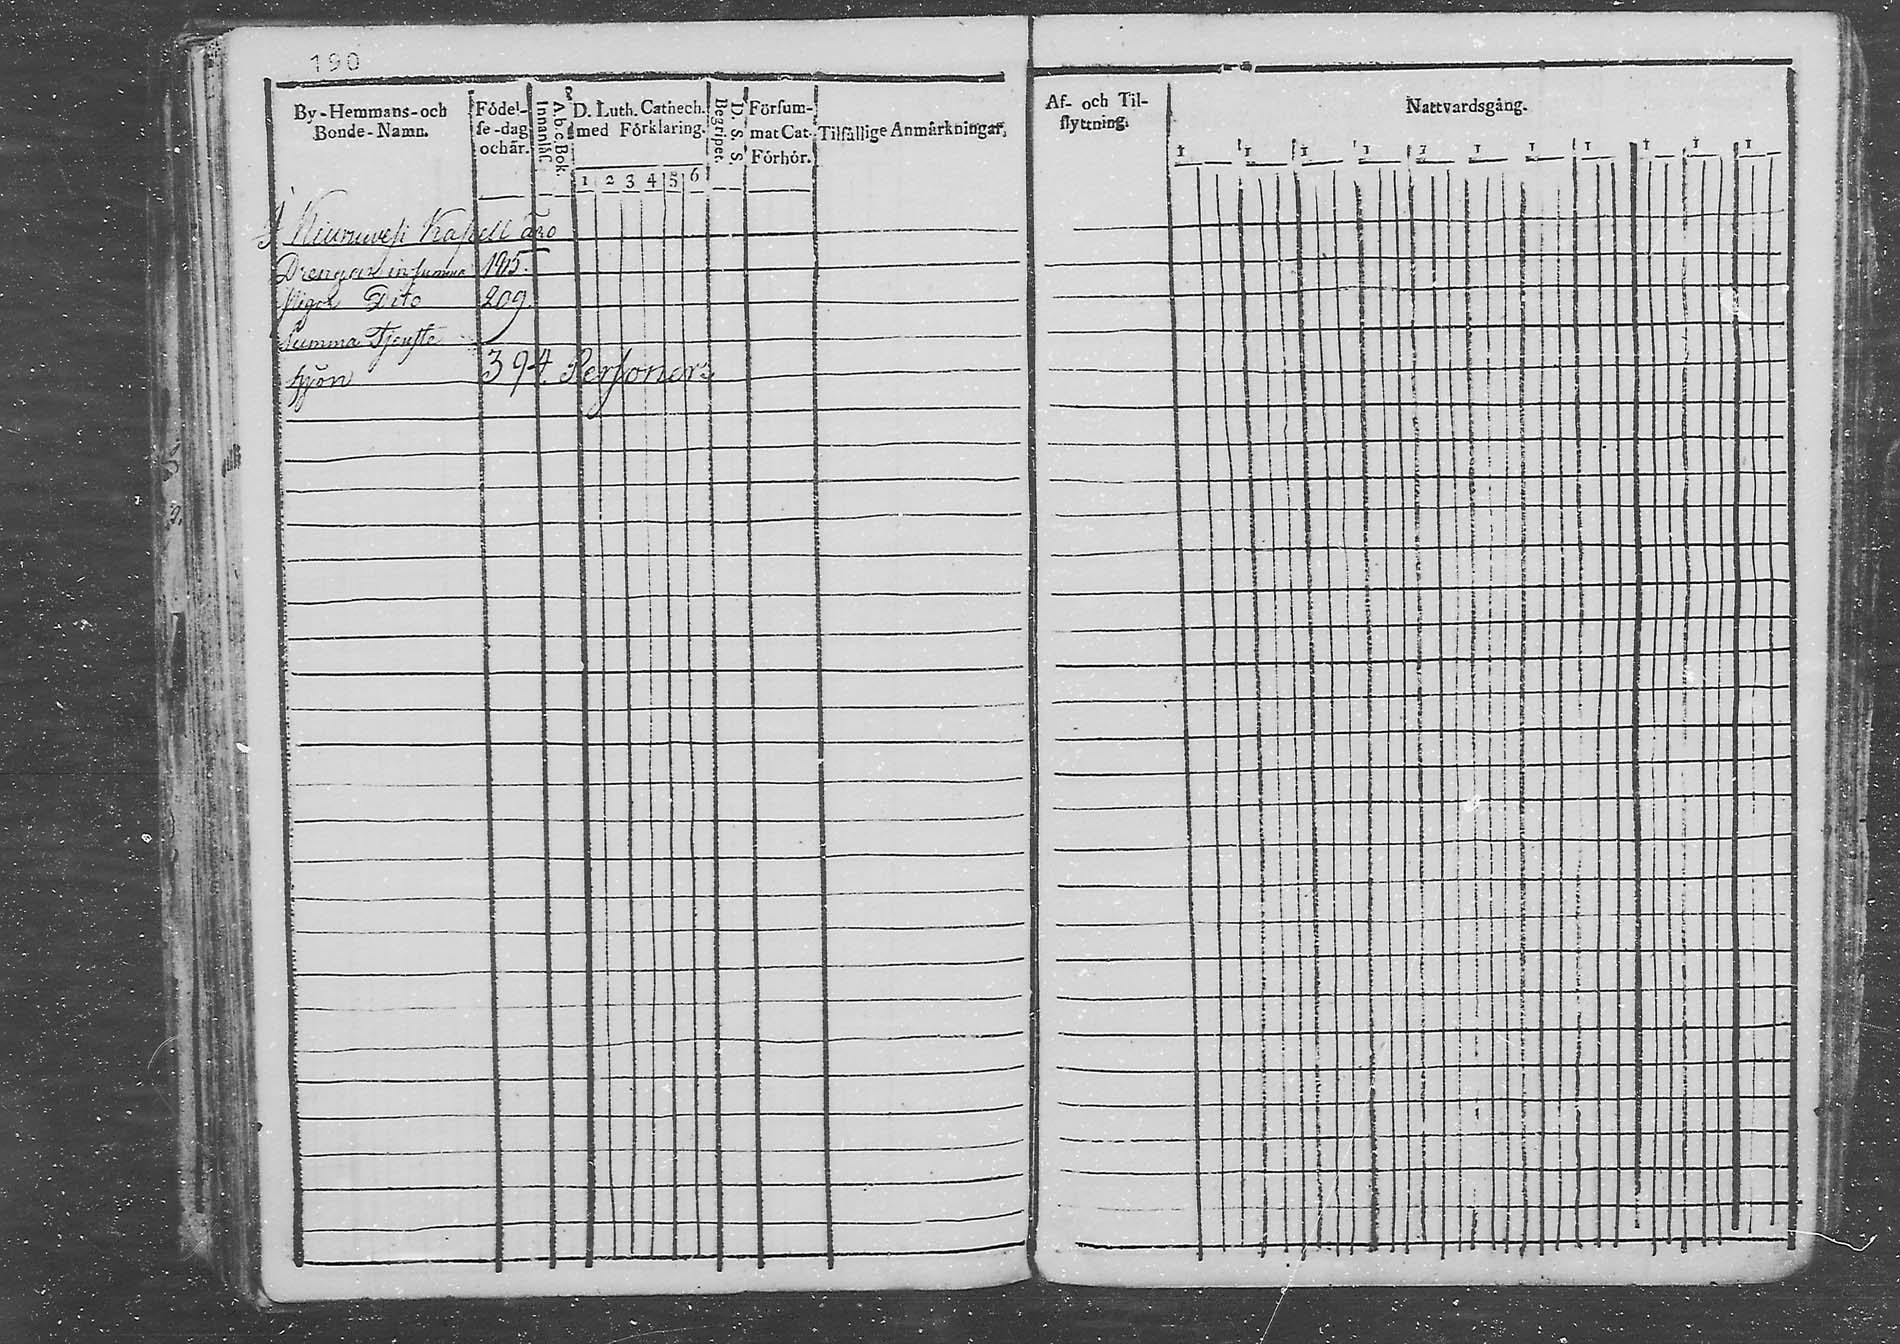 190
By-Hemmans-och
Bonde-Namn.
Födel-
se-dag
och år.
A.b.c.Bok
Innanläs.
D. Luth. Cathech.
med Förklaring.
1 2 3 4 5 6
D. S. S.
Begriper.
Försum-
mat Cat.
Förhör.
Tilfällige Anmärkningar.
Af- och Til-
flyttning.
Nattvardsgång.
1 1 1 1 1 1 1 1 1 1 1
I Kiuruvesi Kapell äro
Drengar in summa 195.
Pigor Dito 209.
Summa Tjenste
hjon 394. Personer